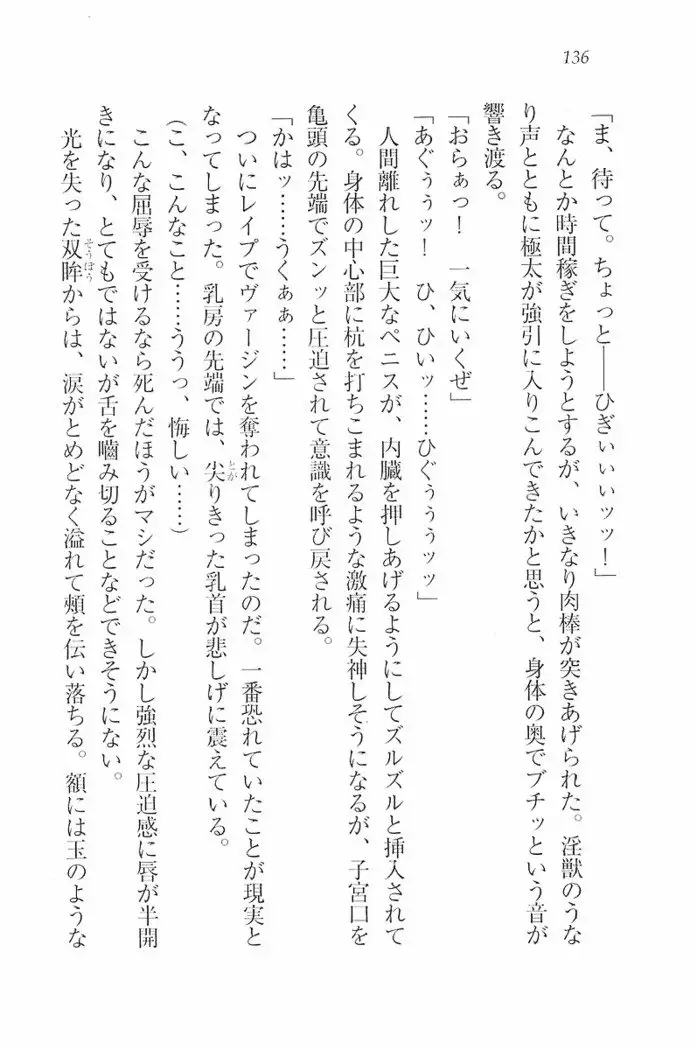 136
「ま、待って。ちょっと――ひぎぃぃぃッッ！」
なんとか時間稼ぎをしようとするが、いきなり肉棒が突きあげられた。淫獣のうな
り声とともに極太が強引に入りこんできたかと思うと、身体の奥でブチッという音が
響き渡る。
「おらぁっ！　一気にいくぜ」
「あぐぅぅッ！　ひ、ひいッ……ひぐぅぅぅッッ」
人間離れした巨大なペニスが、内臓を押しあげるようにしてズルズルと挿入されて
くる。身体の中心部に杭を打ちこまれるような激痛に失神しそうになるが、子宮口を
亀頭の先端でズンッと圧迫されて意識を呼び戻される。
「かはッ……うくぁぁ……」
ついにレイプでヴァージンを奪われてしまったのだ。一番恐れていたことが現実と
なってしまった。乳房の先端では、尖りきった乳首が悲しげに震えている。
（こ、こんなこと……ううっ、悔しい……）
こんな屈辱を受けるなら死んだほうがマシだった。しかし強烈な圧迫感に唇が半開
きになり、とてもではないが舌を嚙み切ることなどできそうにない。
光を失った双眸からは、涙がとめどなく溢れて頰を伝い落ちる。額には玉のような